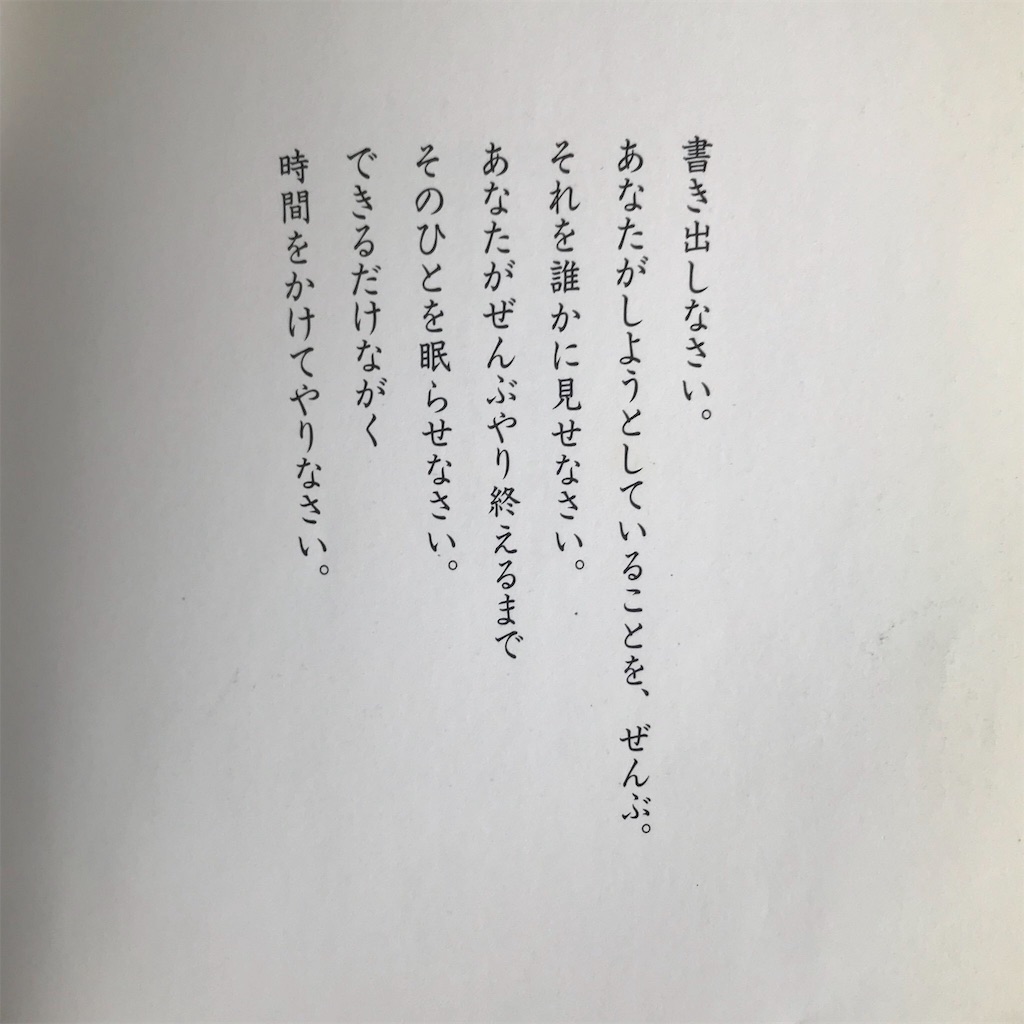 書き出しなさい。
あなたがしようとしていることを、ぜんぶ。
それを誰かに見せなさい。
あなたがぜんぶやり終えるまで
そのひとを眠らせなさい。
できるだけながく
時間をかけてやりなさい。